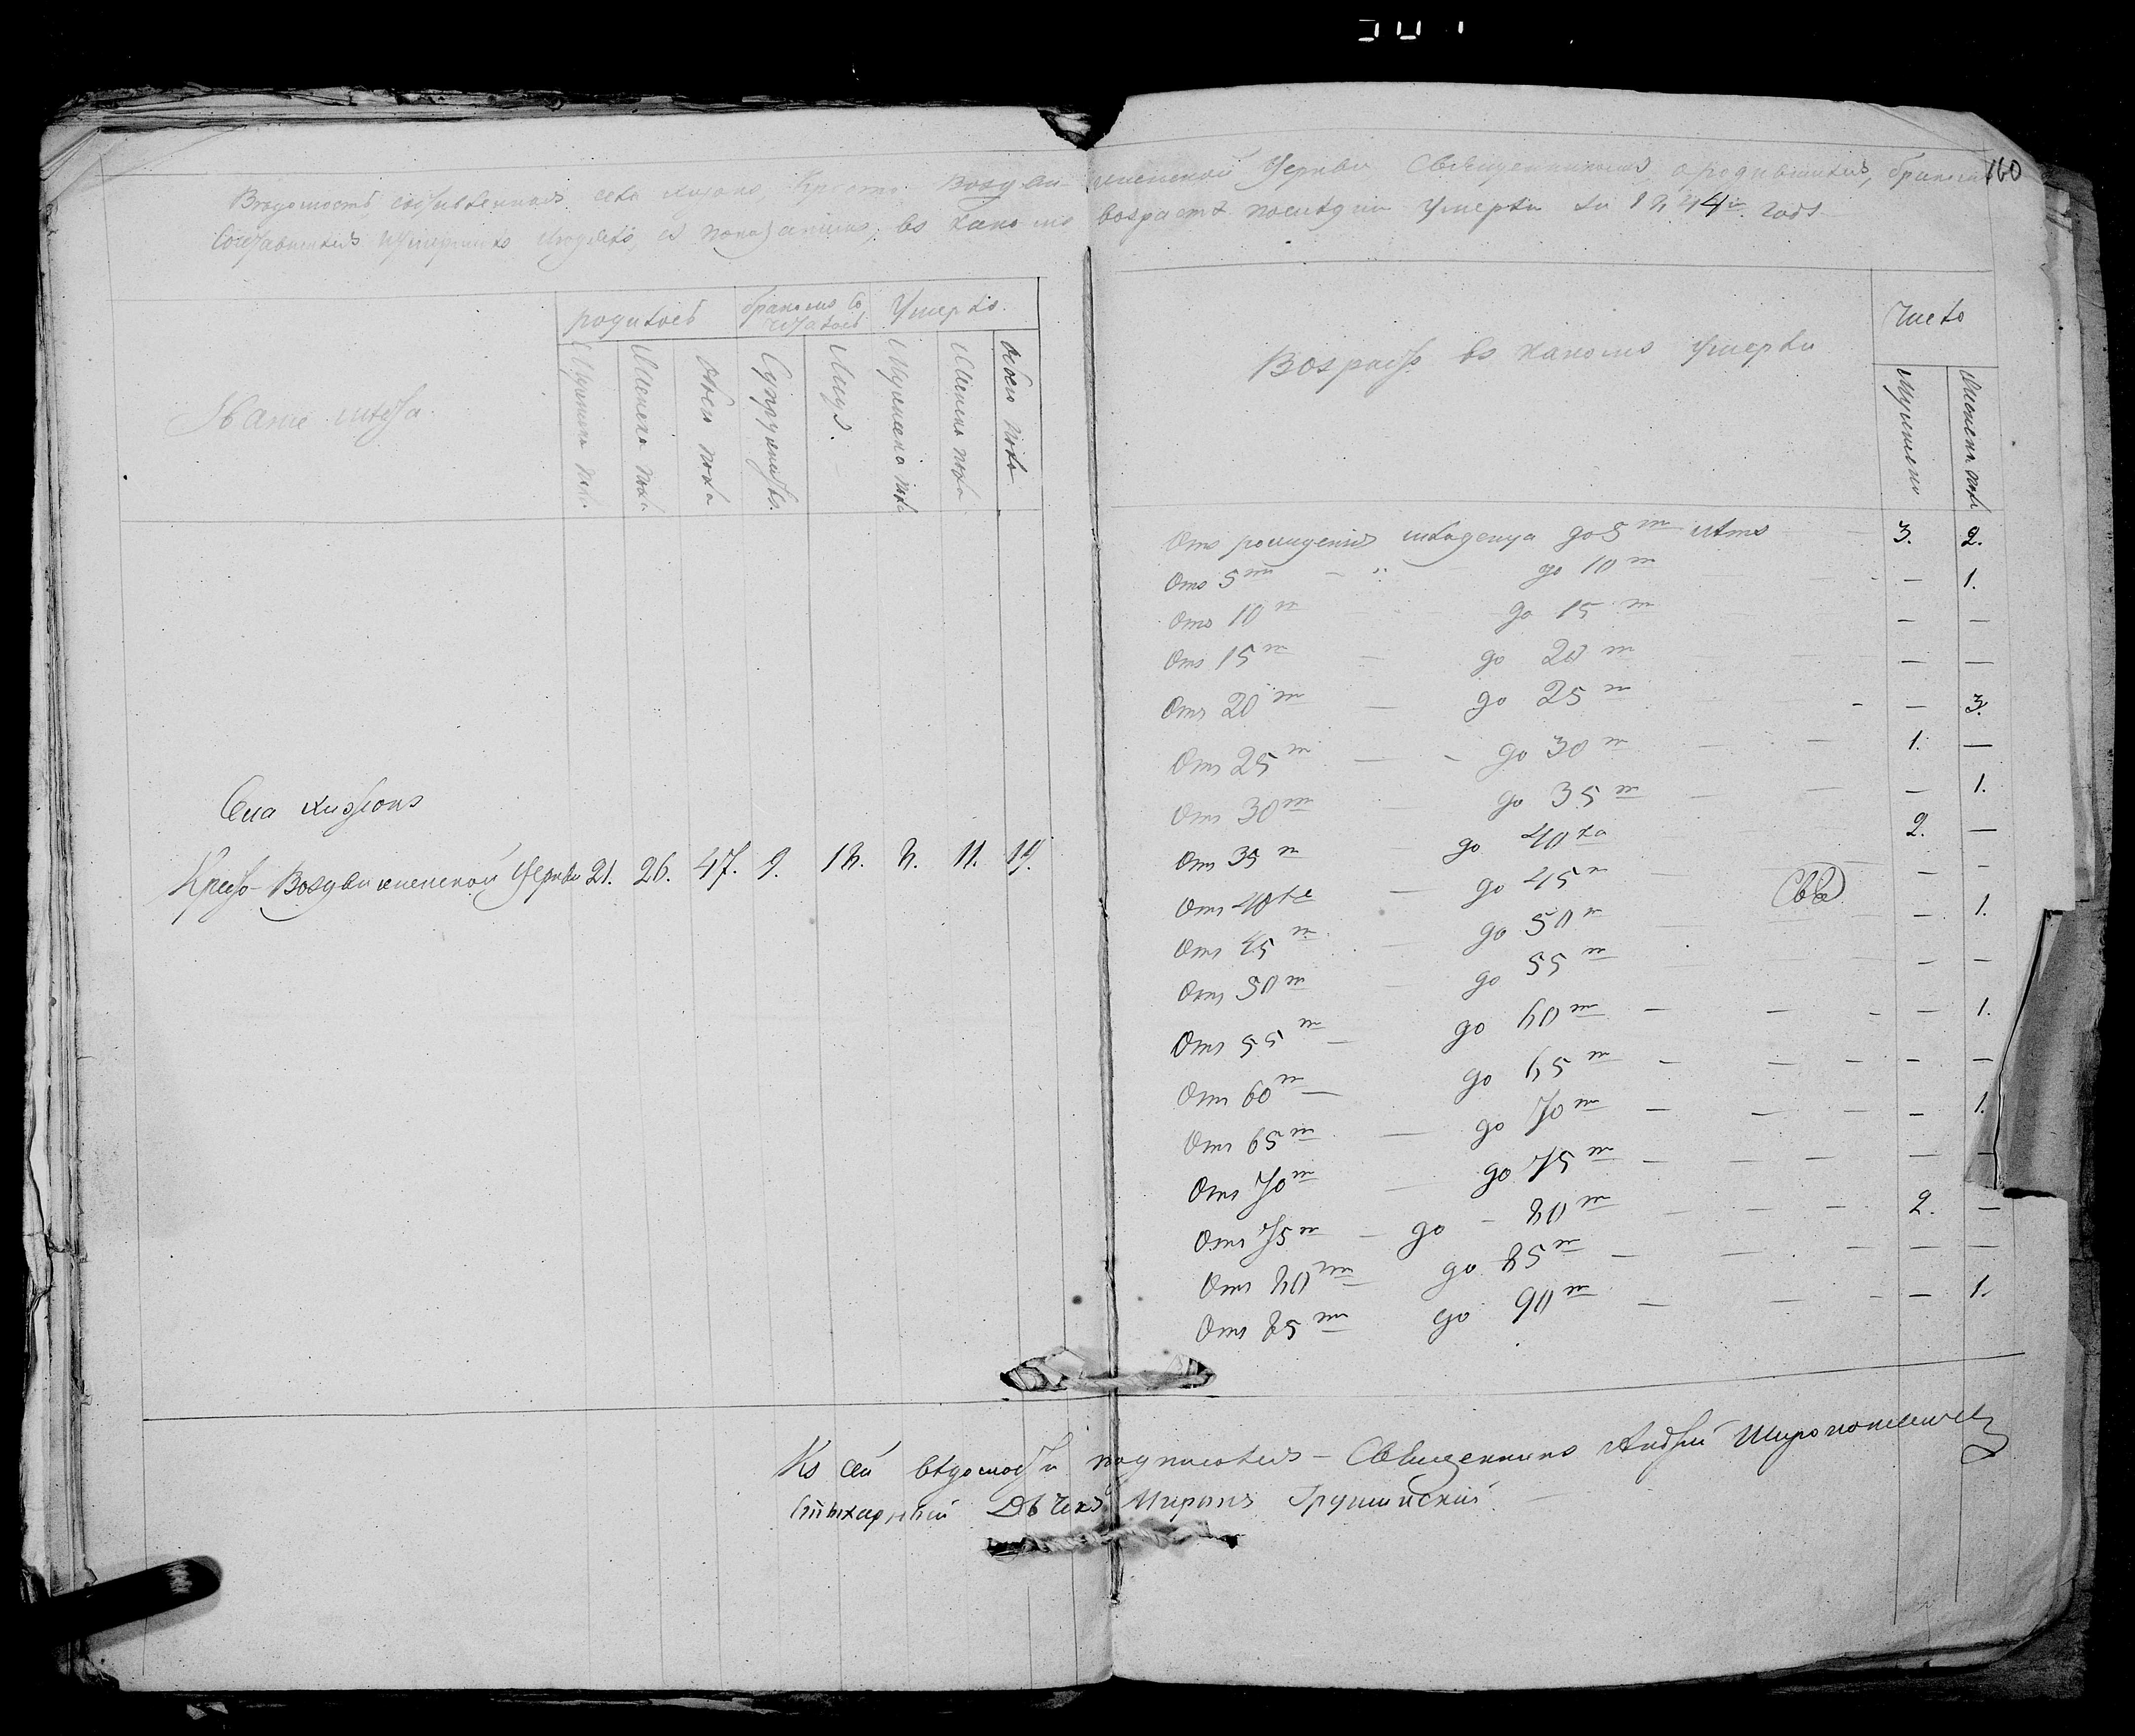 160
Вѣдомость составленная села Крестовоздвиженской Церкви Священникомъ о родившихся, бракомъ
Сочетавшихся и Умершихъ людяхъ, съ показаніемъ, въ какомъ возрастѣ последніи умерли за 1844й годъ
Званіе мѣста
родилось
бракомъ Со четалось
Умерло
Мужеска пола
Женска пола
Обоего пола
Супружествъ
Лицъ
Мужеска пола
Женска пола
Обоего пола
Села
Кресто-Воздвиженской Церкви 21. 26. 47. 9. 18. 8. 11. 19.
Возрастъ въ какомъ умерли
Число
Мужеска
Женска пола
Отъ рожденія младенца до 5ти лѣтъ 3. 2.
Отъ 5ти — до 10ти — 1.
Отъ 10ти до 15ти — —
Отъ 15ти — до 20ти — —
Отъ 20ти — до 25ти — 3.
Отъ 25ти — до 30ти 1. —
Отъ 30ти до 35ти — 1.
Отъ 35ти до 40ка 2. —
Отъ 40ка — до 45ти — —
Отъ 45ти — до 50ти — 1.
Отъ 50ти до 55ти — —
Отъ 55ти — до 60ти — 1.
Отъ 60ти — до 65ти — —
Отъ 65ти — до 70ти — 1.
Отъ 70ти — до 75ти — —
Отъ 75ти — до 80ти 2. —
Отъ 80ти до 85ти — —
Отъ 85ти до 90ти — 1.
Къ сей вѣдомости подписался — Священникъ Андрей
Стихарный Дьячекъ Миронъ Грушинскій